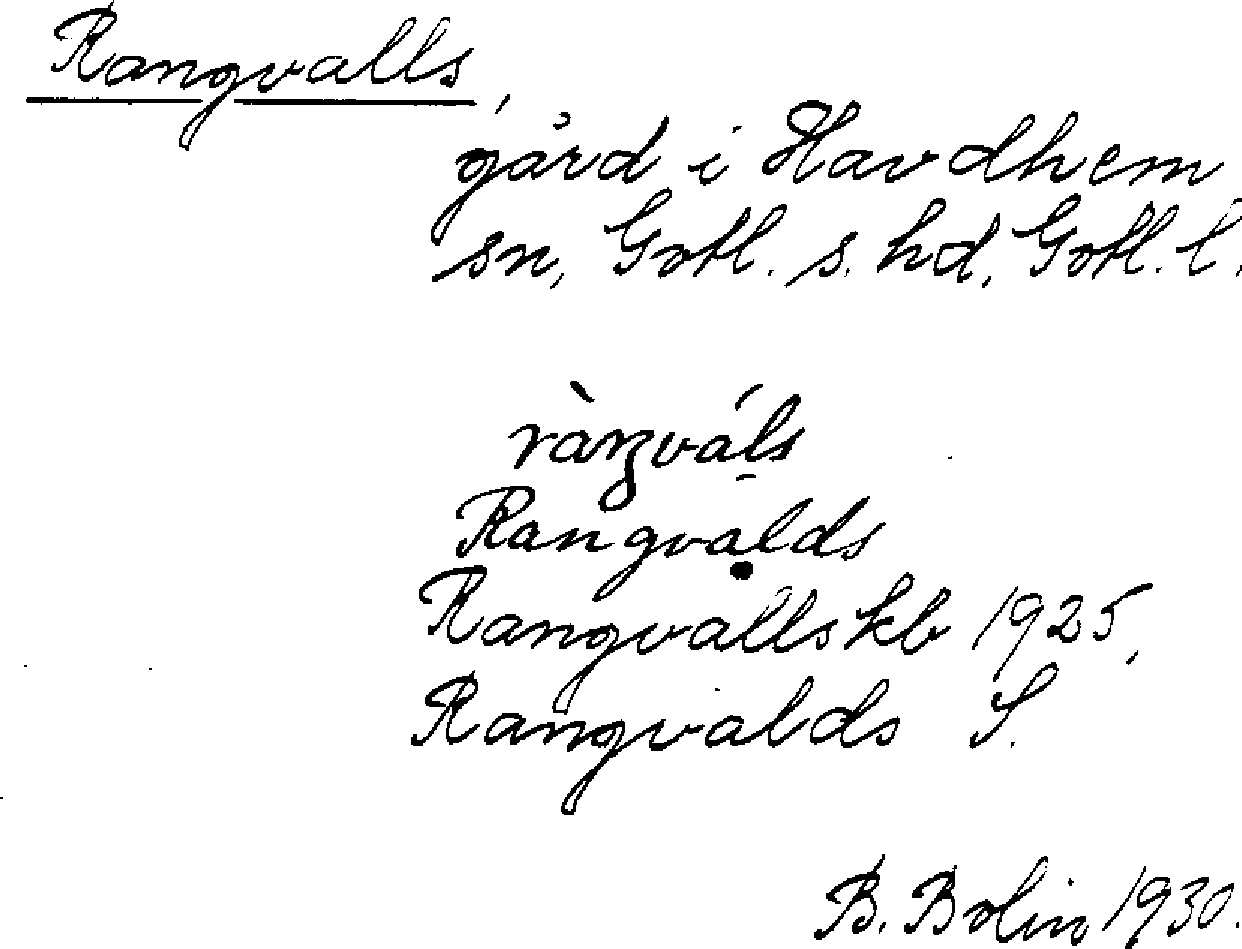 Rangvalls,
gård i Havdhem
sn, Gotl. s. hd, Gotl. l.
ràŋváls
Rangvalds
Rangvalls kb 1925,
Rangvalds S.
B. Bolin 1930.